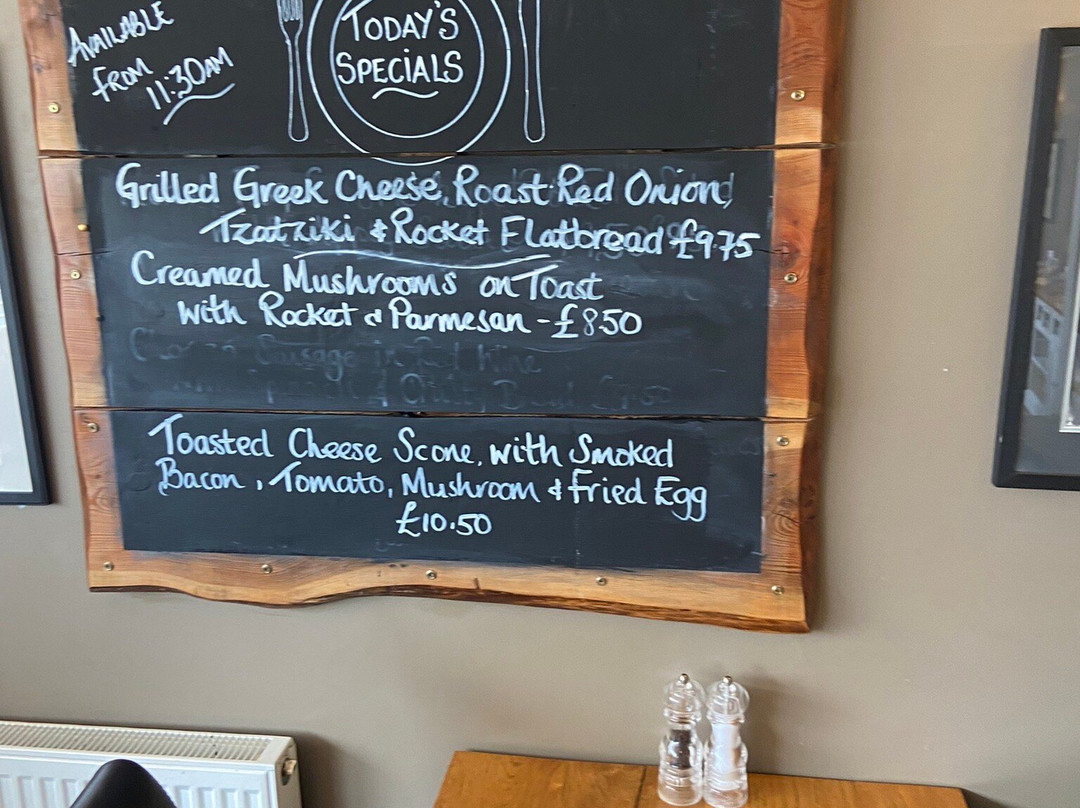 AVAILABLE
FROM
11:30AM
TODAY'S
SPECIALS
Grilled Greek Cheese, Roast Red Onion,
Tzatziki & Rocket Flatbread £9.75
Creamed Mushrooms on Toast
with Rocket & Parmesan - £8.50
Sausage in Red Wine
Toasted Cheese Scone, with Smoked
Bacon, Tomato, Mushroom & Fried Egg
£10.50